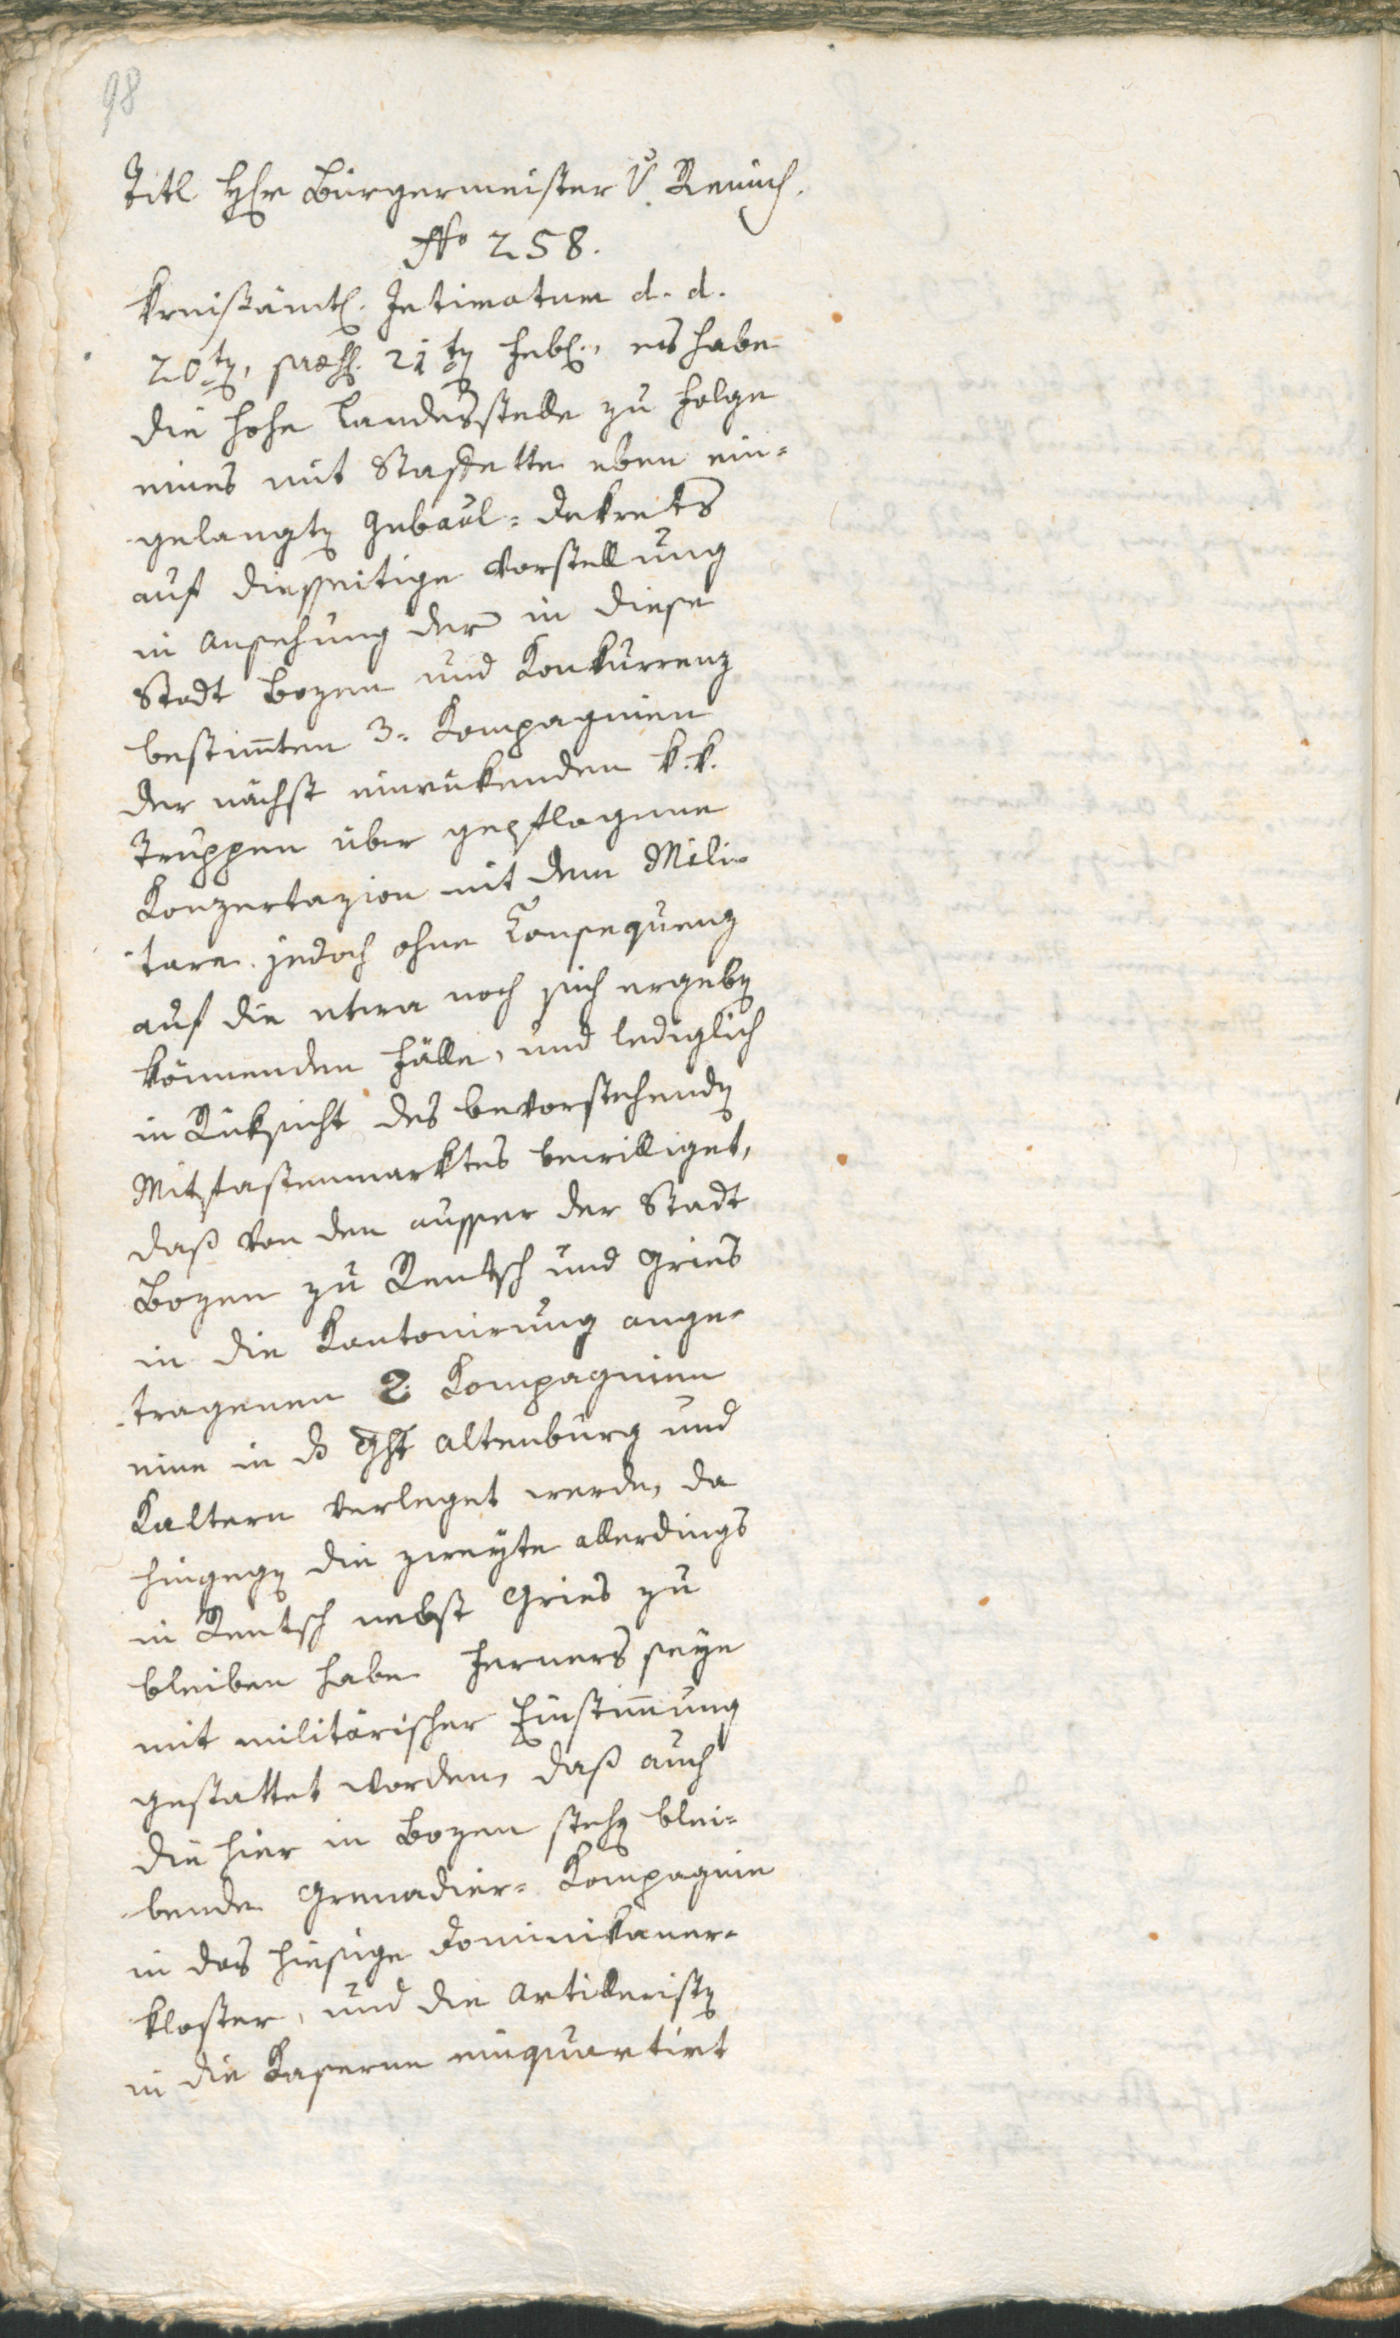 98
Titl Hhr Bürgermeister V. Remich.
No 258.
Kreisämtl. Intimatum d. d.
20ten, præs. 21ten Febr., es habe
die hohe Landesstelle zu Folge
eines mit Staffette eben ein-
gelangten Gubaul-Dekrets
auf diesseitige Vorstellung
in Ansehung der in diese
Stadt Bozen und Konkurrenz
bestimten 3. Kompagnien
der nächst einrükenden k. k.
Truppen über gepflogene
Konzertazion mit dem Mili-
tare jedoch ohne Consequenz
auf die etwa noch sich ergeben
könnenden Fälle, und lediglich
in Rüksicht des bevorstehenden
Mitfastenmarktes bewilliget,
daß von den ausser der Stadt
Bozen zu Rentsch und Gries
in die Kantonirung ange-
tragenen 2. Kompagnien
eine in das Ght Altenburg und
Kaltern verleget werde, da
hingegen die zweyte allerdings
in Rentsch nebst Gries zu
bleiben habe. Ferners seye
mit militärischer Einstimung
gestattet worden, daß auch
die hier in Bozen stehen blei-
bende Grenadier-Kompagnie
in das hiesige Dominikaner-
kloster, und die Artilleristen
in die Kaserne einquartirt